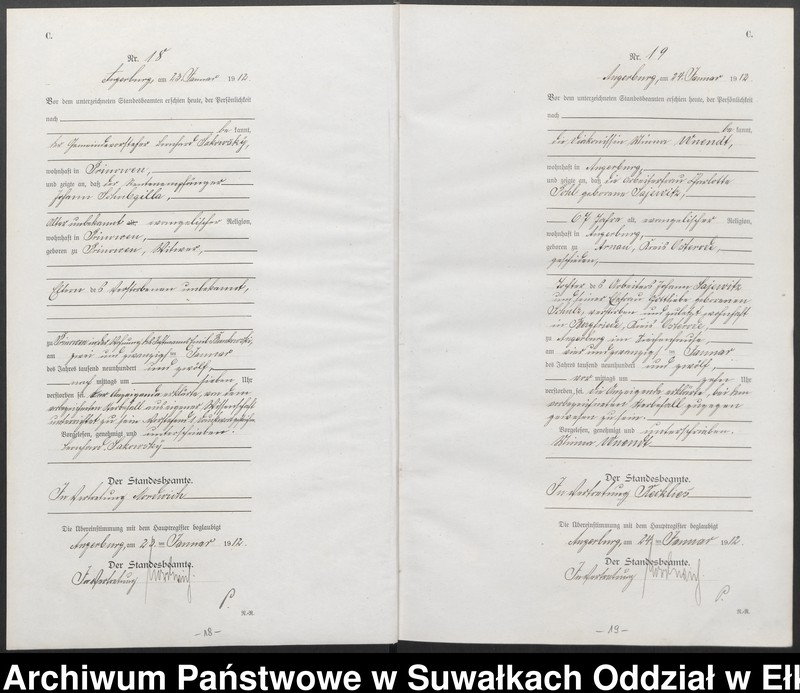 C.
Nr. 18
Angerburg, am 23. Januar 1912.
Vor dem unterzeichneten Standesbeamten erschien heute, der Persönlichkeit
nach
bekannt,
der Gemeindevorsteher Leonhard Sakowsky,
wohnhaft in Prinowen,
und zeigte an, daß der Rentenempfänger
Johann
Alter unbekannt evangelischer Religion,
wohnhaft in Prinowen,
geboren zu Prinowen, Witwer,
Eltern des Verstorbenen unbekannt,
zu Prinowen in der Behausung des
am zwei und zwanzigsten Januar
des Jahres tausend neunhundert und zwölf,
nach mittags um sieben Uhr
verstorben sei. Der Anzeigende erklärte, von dem
vorbezeichneten Sterbefall aus eigener Wissenschaft
unterrichtet zu sein.
Vorgelesen, genehmigt und unterschrieben.
Leonhard Sakowsky
Der Standesbeamte.
In Vertretung
Die Übereinstimmung mit dem Hauptregister beglaubigt
Angerburg, am 23. ten Januar 1912.
Der Standesbeamte.
In Vertretung
P.
N.-R.
-18-
C.
Nr. 19
Angerburg, am 24. Januar 1912.
Vor dem unterzeichneten Standesbeamten erschien heute, der Persönlichkeit
nach
bekannt,
die Diakonissin Minna Unendt,
wohnhaft in Angerburg
und zeigte an, daß die Arbeiterfrau Charlotte
Pohl geborene Sajewitz,
67 Jahre alt, evangelischer Religion,
wohnhaft in Angerburg,
geboren zu Arnau, Kreis Osterode,
geschieden,
Tochter des Arbeiters Johann Sajewitz
und seiner Ehefrau Gottliebe geborenen
Schulz, verstorben und zuletzt wohnhaft
in Bergfriede, Kreis Osterode,
zu Angerburg im Siechenhause,
am vier und zwanzigsten Januar
des Jahres tausend neunhundert und zwölf
vor mittags um zehn Uhr
verstorben sei. Die Anzeigende erklärte, bei dem
vorbezeichneten Sterbefall zugegen
gewesen zu sein.
Vorgelesen, genehmigt und unterschrieben.
Minna Unendt
Der Standesbeamte.
In Vertretung Recklies
Die Übereinstimmung mit dem Hauptregister beglaubigt
Angerburg, am 24. ten Januar 1912.
Der Standesbeamte.
In Vertretung
P.
N.-R.
-19-
Archiwum Państwowe w Suwałkach Oddział w Eł